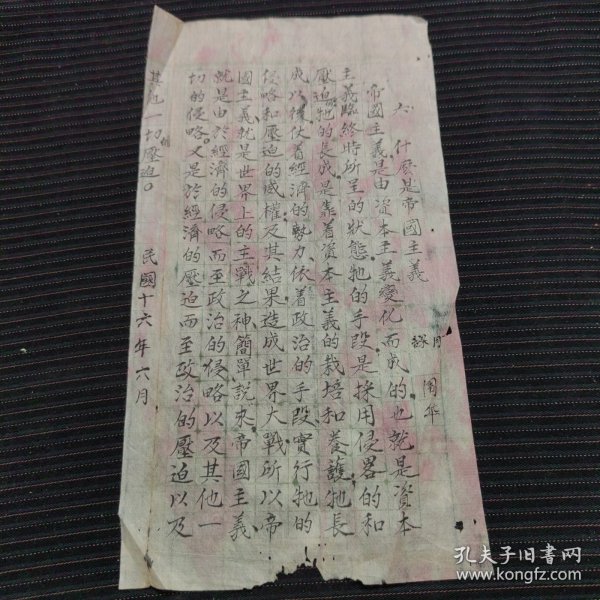 六、什麽是帝國主義
周年
帝國主義是由資本主義變化而成的也就是資本
主義臨終時所呈的狀態牠的手段是採用侵畧的和
壓迫牠的長成是靠着資本主義的栽培和養護牠長
成以後仗着經濟的勢力依着政治的手段實行牠的
侵略和壓迫的威權及其結果造成世界大戰所以帝
國主義就是世界上的主戰之神簡單說來帝國主義
就是由於經濟的侵略而至政治的侵略以及其他一
切的侵略又是於經濟的壓迫而至政治的壓迫以及
其他一切壓迫。
民國十六年六月
孔夫子旧书网
www.kongfz.com